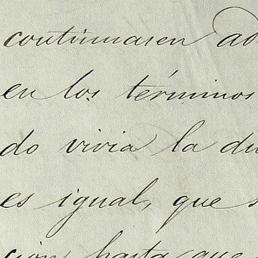 continuasen ad
en los términos
do vivia la du
es igual, que s
cion hasta que